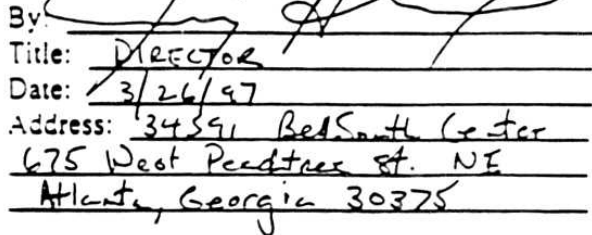 By:
Title: DIRECTOR
Date: 3/26/97
Address: 34S91 BellSouth Center
675 West Peachtree St. NE
Atlanta, Georgia 30375